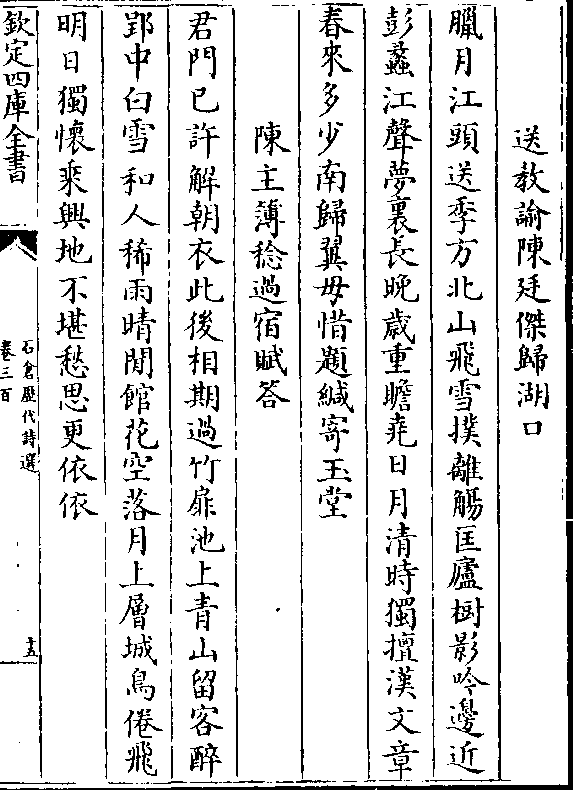 送教諭陳廷傑歸湖口
臘月江頭送季方北山飛雪撲離觴匡廬樹影吟邊近
彭蠡江聲夢裏長晚歳重瞻堯日月清時獨擅漢文章
春來多少南歸翼毋惜題緘寄玉堂
陳主簿稔過宿賦答
君門已許解朝衣此後相期過竹扉池上青山留客醉
郢中白雪和人稀雨晴閒館花空落月上層城鳥倦飛
明日獨懷乘興地不堪愁思更依依
欽定四庫全書
石倉歴代詩選
卷三百
十五